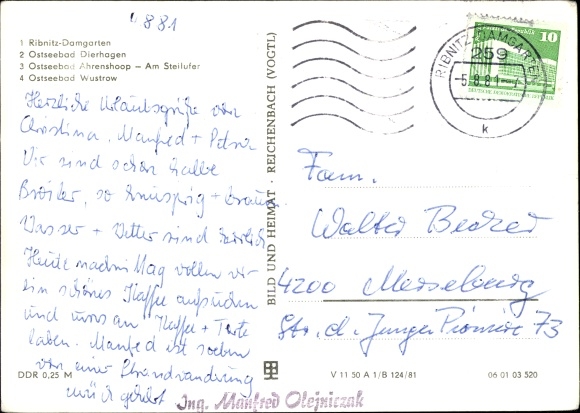 4881
1 Ribnitz-Damgarten
2 Ostseebad Dierhagen
3 Ostseebad Ahrenshoop – Am Steilufer
4 Ostseebad Wustrow
Herzliche Urlaubsgrüße von
Christina, Manfred + Peter
Wir sind schon halbe
Broiler, so knusprig + braun.
Wasser + Wetter sind herrlich
Heute nachmittag wollen wir
ein schönes Kaffee aufsuchen
und uns an Kaffee + Torte
laben. Manfred ist soeben
von einer Strandwanderung
zurück gekehrt.
Ing. Manfred Olejniczak
DDR 0,25 M
BILD UND HEIMAT · REICHENBACH (VOGTL)
V 11 50 A 1/B 124/81
06 01 03 520
RIBNITZ-DAMGARTEN
259
-5.8.81-7
k
10
Fam.
Walter
4200 Merseburg
Str. d. Junger Pioniere 73